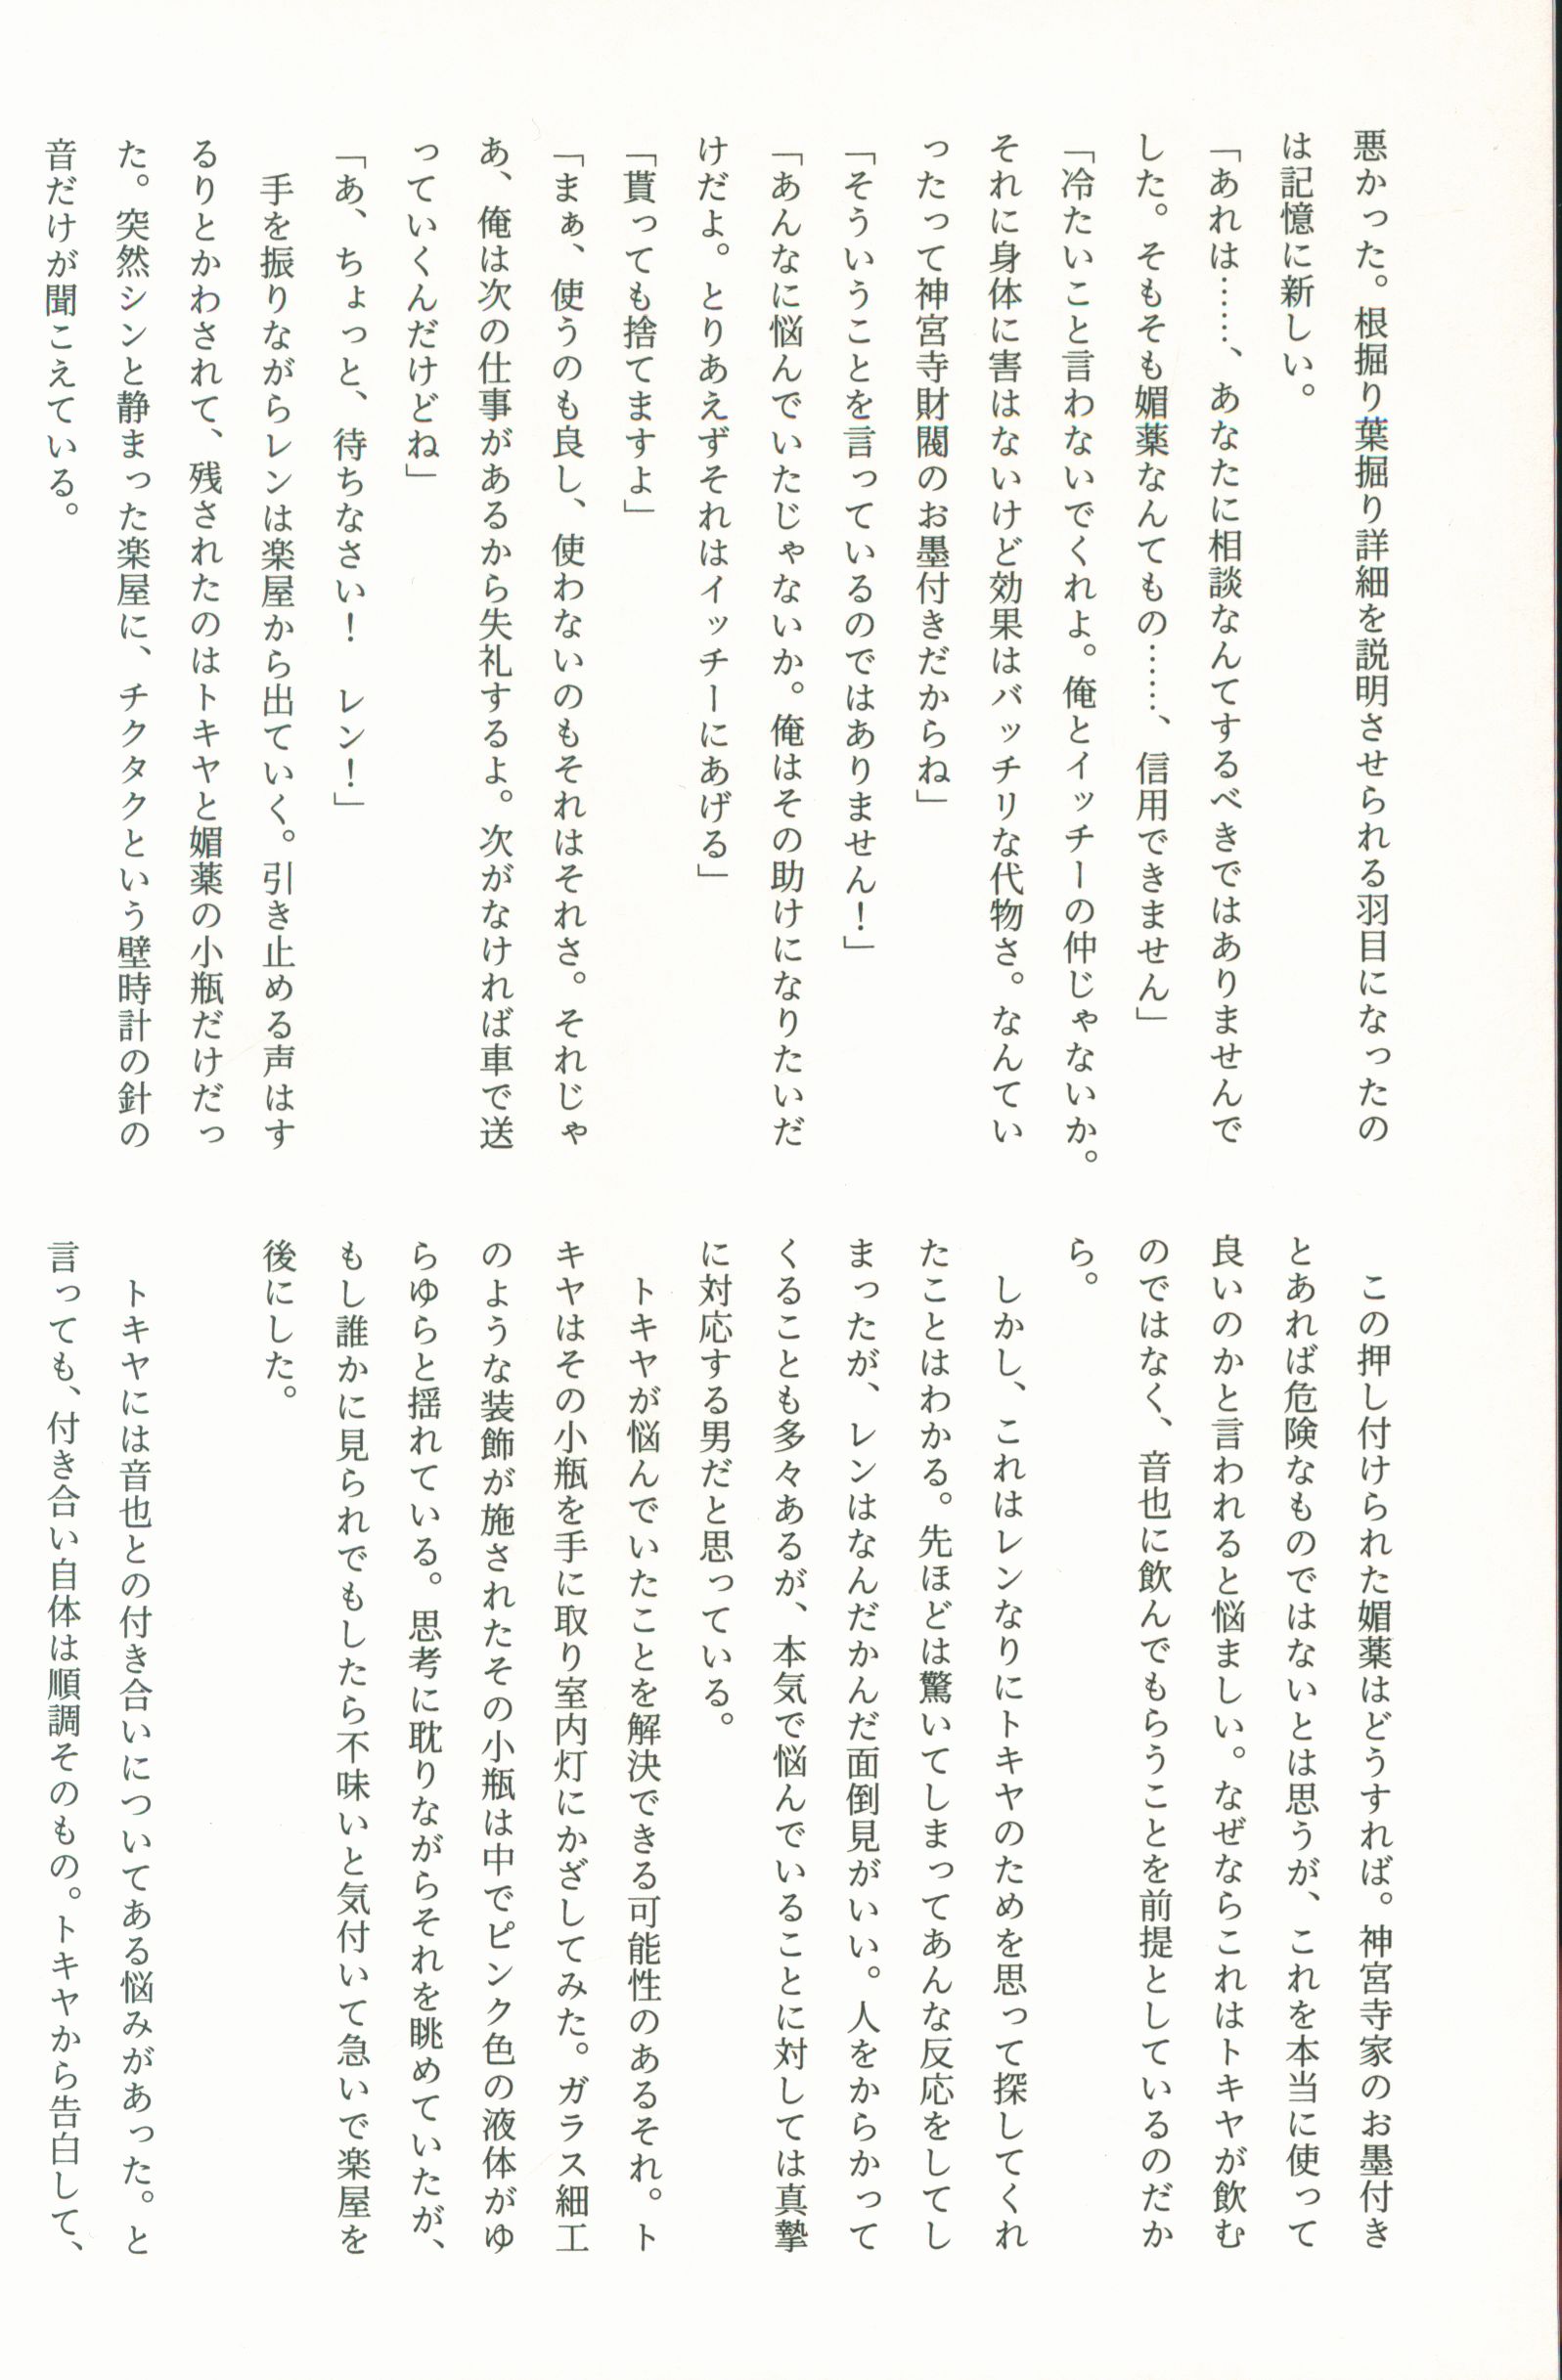 悪かった。根掘り葉掘り詳細を説明させられる羽目になったの
は記憶に新しい。
「あれは……、あなたに相談なんてするべきではありませんで
した。そもそも媚薬なんてもの……、信用できません」
「冷たいこと言わないでくれよ。俺とイッチーの仲じゃないか。
それに身体に害はないけど効果はバッチリな代物さ。なんてい
ったって神宮寺財閥のお墨付きだからね」
「そういうことを言っているのではありません！」
「あんなに悩んでいたじゃないか。俺はその助けになりたいだ
けだよ。とりあえずそれはイッチーにあげる」
「貰っても捨てますよ」
「まぁ、使うのも良し、使わないのもそれはそれさ。それじゃ
あ、俺は次の仕事があるから失礼するよ。次がなければ車で送
っていくんだけどね」
「あ、ちょっと、待ちなさい！　レン！」
　手を振りながらレンは楽屋から出ていく。引き止める声はす
るりとかわされて、残されたのはトキヤと媚薬の小瓶だけだっ
た。突然シンと静まった楽屋に、チクタクという壁時計の針の
音だけが聞こえている。
　この押し付けられた媚薬はどうすれば。神宮寺家のお墨付き
とあれば危険なものではないとは思うが、これを本当に使って
良いのかと言われると悩ましい。なぜならこれはトキヤが飲む
のではなく、音也に飲んでもらうことを前提としているのだか
ら。
　しかし、これはレンなりにトキヤのためを思って探してくれ
たことはわかる。先ほどは驚いてしまってあんな反応をしてし
まったが、レンはなんだかんだ面倒見がいい。人をからかって
くることも多々あるが、本気で悩んでいることに対しては真摯
に対応する男だと思っている。
　トキヤが悩んでいたことを解決できる可能性のあるそれ。ト
キヤはその小瓶を手に取り室内灯にかざしてみた。ガラス細工
のような装飾が施されたその小瓶は中でピンク色の液体がゆ
らゆらと揺れている。思考に耽りながらそれを眺めていたが、
もし誰かに見られでもしたら不味いと気付いて急いで楽屋を
後にした。
　トキヤには音也との付き合いについてある悩みがあった。と
言っても、付き合い自体は順調そのもの。トキヤから告白して、